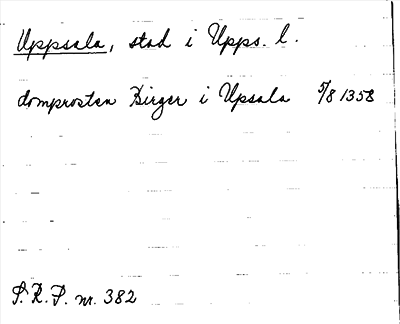 Uppsala, stad i Upps. l.
domprosten Birger i Upsala 5/8 1358
S. R. P. nr. 382